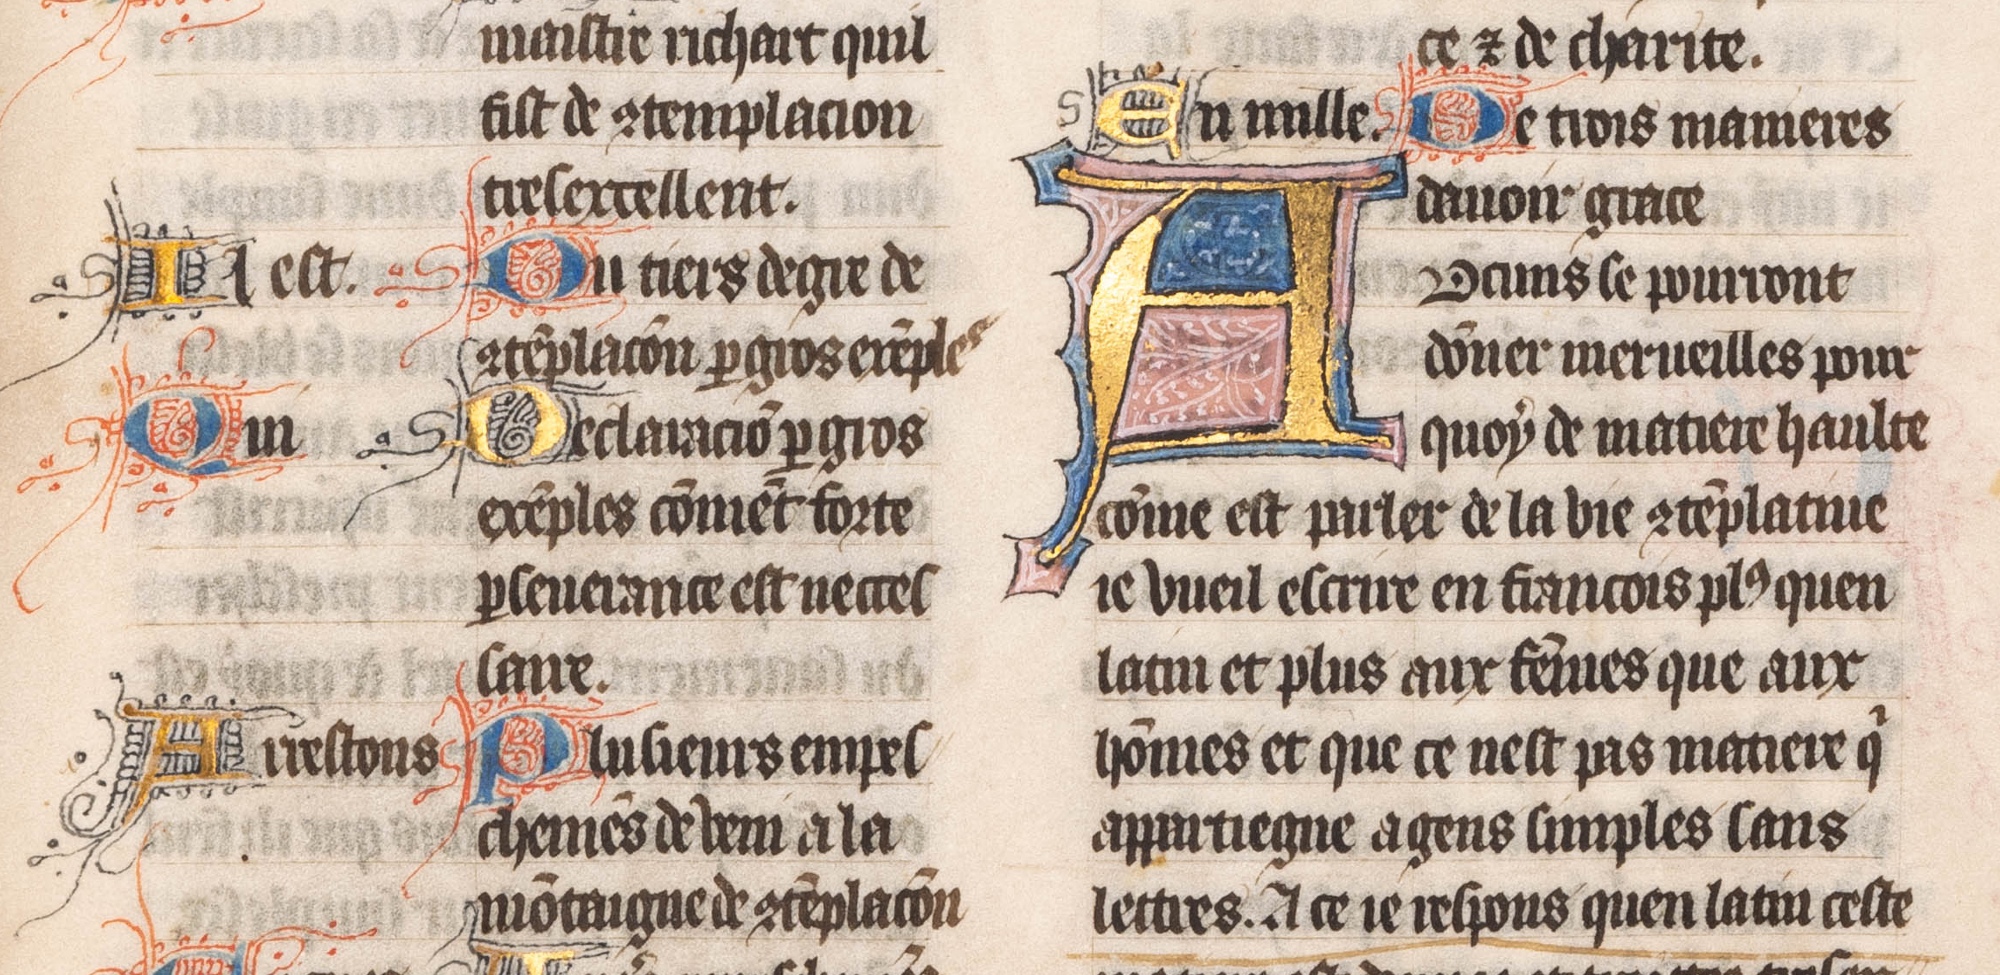 maistre richart quil
fist de ꝯtemplacion
tresexcellent.
Il est. Du tiers degre de
ꝯtẽplacõn ꝑ gros exẽples
Qui Declaraciõ ꝑ gros
exẽples cõmẽt forte
ꝑseuerance est neces
saire.
Arrestons Plusieurs empes
chemẽs de veni a la
mõtaigne de ꝯtẽplacõn
ce ⁊ de charite.
En mille. De trois manieres
dauoir grace
Aucuns se pourront
dõner merueilles pour
quoy de matiere haulte
cõme est parler de la vie ꝯtẽplatiue
ie vueil escrire en francois plꝰ quen
latin et plus aux fẽmes que aux
hõmes et que ce nest pas matiere q̃
appartiegne a gens simples sans
lettres. A ce ie respons quen latin ceste